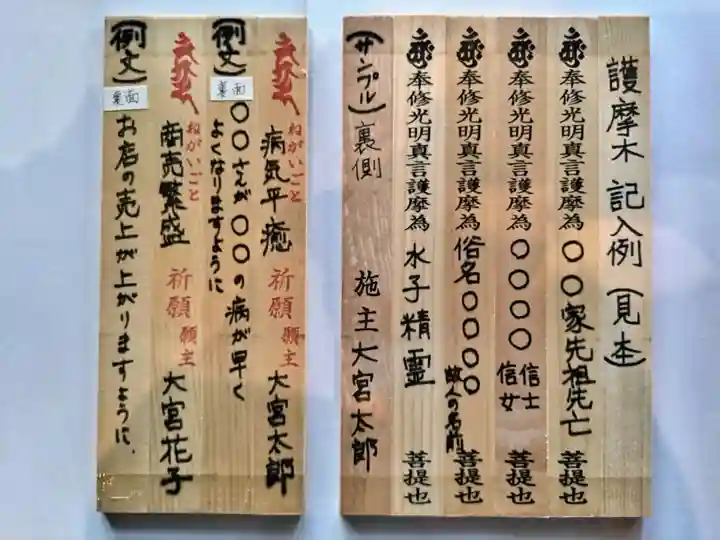 護摩木 記入例 (見本)
奉修光明真言護摩為 〇〇家先祖先亡 菩提也
奉修光明真言護摩為 〇〇〇〇 信士 信女 菩提也
奉修光明真言護摩為 俗名〇〇〇〇 故人の名前 菩提也
奉修光明真言護摩為 水子精霊 菩提也
(サンプル) 裏側 施主 大宮太郎
ねがいごと
病気平癒 祈願 願主 大宮太郎
(例文) 裏面 〇〇さんが〇〇の病が早く
よくなりますように
ねがいごと
商売繁盛 祈願 願主 大宮花子
(例文) 裏面 お店の売上が上がりますように、